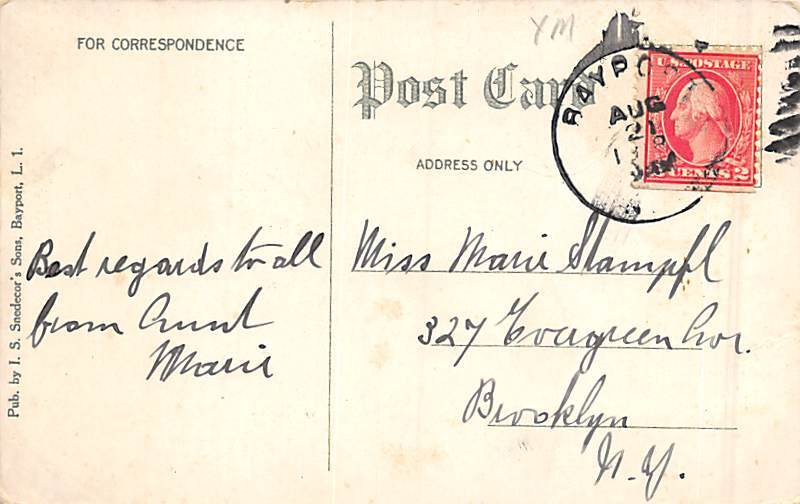 FOR CORRESPONDENCE
Post Card
ADDRESS ONLY
YM
BAYPOR
AUG
21
U.S. POSTAGE
CENTS 2
Best regards to all
from Aunt
Marie
Miss Marie Stampfl
327 Evergreen Av.
Brooklyn
N.Y.
Pub. by I. S. Snedecor's Sons, Bayport, L. I.